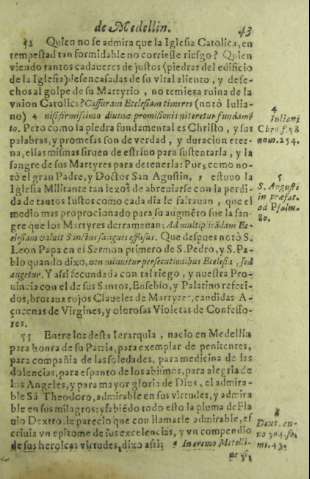 de Medellin. 43
52 Quien no se admira que la Iglesia Catolica, en
tempestad tan formidable no corriesse riesgo? Quien
viendo tantos cadaveres de justos (piedras del edificio
de la Iglesia) desencasadas de su vital aliento, y dese-
chos al golpe de su Martyrio, no temiera ruina de la
vnion Catolica? Cassuram Ecclesiam timeres (notò Iulia-
no) 4 nisi firmissimo divinæ promissionis niteretur fundamẽ
to. Pero como la piedra fundamental es Christo, y sus
palabras, y promesas son de verdad, y duracion eter-
na, ellas mismas sirven de estrivo para sustentarla, y la
sangre de sus Martyres para detenerla: Pur, como no-
tò el gran Padre, y Doctor San Agustin, 5 estuvo la
Iglesia Militante tan lexos de abreviarse con la perdi-
da de tantos Iustos como cada dia le faltavan, que el
medio mas proporcionado para su augmẽto fue la san-
gre que los Martyres derramaron: Ad multiplicãdam Ec-
clesiam valuit Sanctus sanguis effusus. Que despues notò S.
Leon Papa en el Sermon primero de S. Pedro, y S. Pa-
blo quando dixo, non minuitur persecutionibus Ecclesia, sed
augetur. Y assi fecundada con tal riego, y nuestra Pro-
vincia con el de sus Santos, Eusebio, y Palatino referi-
dos, brotava rojos Claveles de Martyres, candidas A-
çucenas de Virgines, y olorosas Violetas de Confesso-
res.
53 Entre los desta Ierarquia, nacio en Medellin
para honra de su Patria, para exemplar de penitentes,
para compañia de las soledades, para medicina de las
dolencias, para espanto de los abismos, para alegria de
los Angeles, y para mayor gloria de Dios, el admira-
ble Sã Theodoro, admirable en sus virtudes, y admira
ble en sus milagros; y sabiẽdo todo esto la pluma de Fla
vio Dextro, le pareciò que con llamarle admirable, es
crivia vn epitome de sus excelencias, y vn compendio
de sus heroicas virtudes, dixo assi; 6 In eremo Metelli-
4
Iuliani
Chro. f. 98
num. 254.
5
S. Augusti
in præfat.
ad Psalm.
80.
6
Dext. an-
no